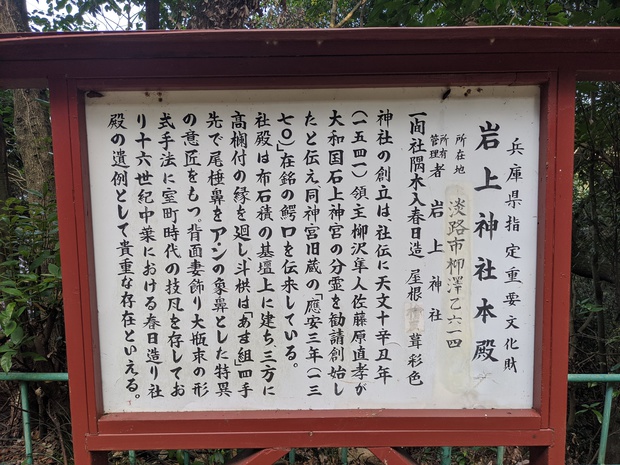 兵庫県指定重要文化財
岩上神社本殿
所在地 淡路市柳澤乙六一四
所有
管理者 岩上神社
一間社隅木入春日造 屋根 葺彩色
神社の創立は、社伝に天文十辛丑年
(一五四一)領主柳沢隼人佐藤原直孝が
大和国石上神宮の分霊を勧請創始し
たと伝え同神宮旧蔵の「應安三年(一三
七〇)」在銘の鰐口を伝来している。
社殿は布石積の基壇上に建ち、三方に
高欄付の縁を廻し斗栱は「あま組」四手
先で尾棰鼻をアンの象鼻とした特異
の意匠をもつ。背面妻飾り大瓶束の形
式手法に室町時代の技凡を存してお
り十六世紀中葉における春日造り社
殿の遺例として貴重な存在といえる。